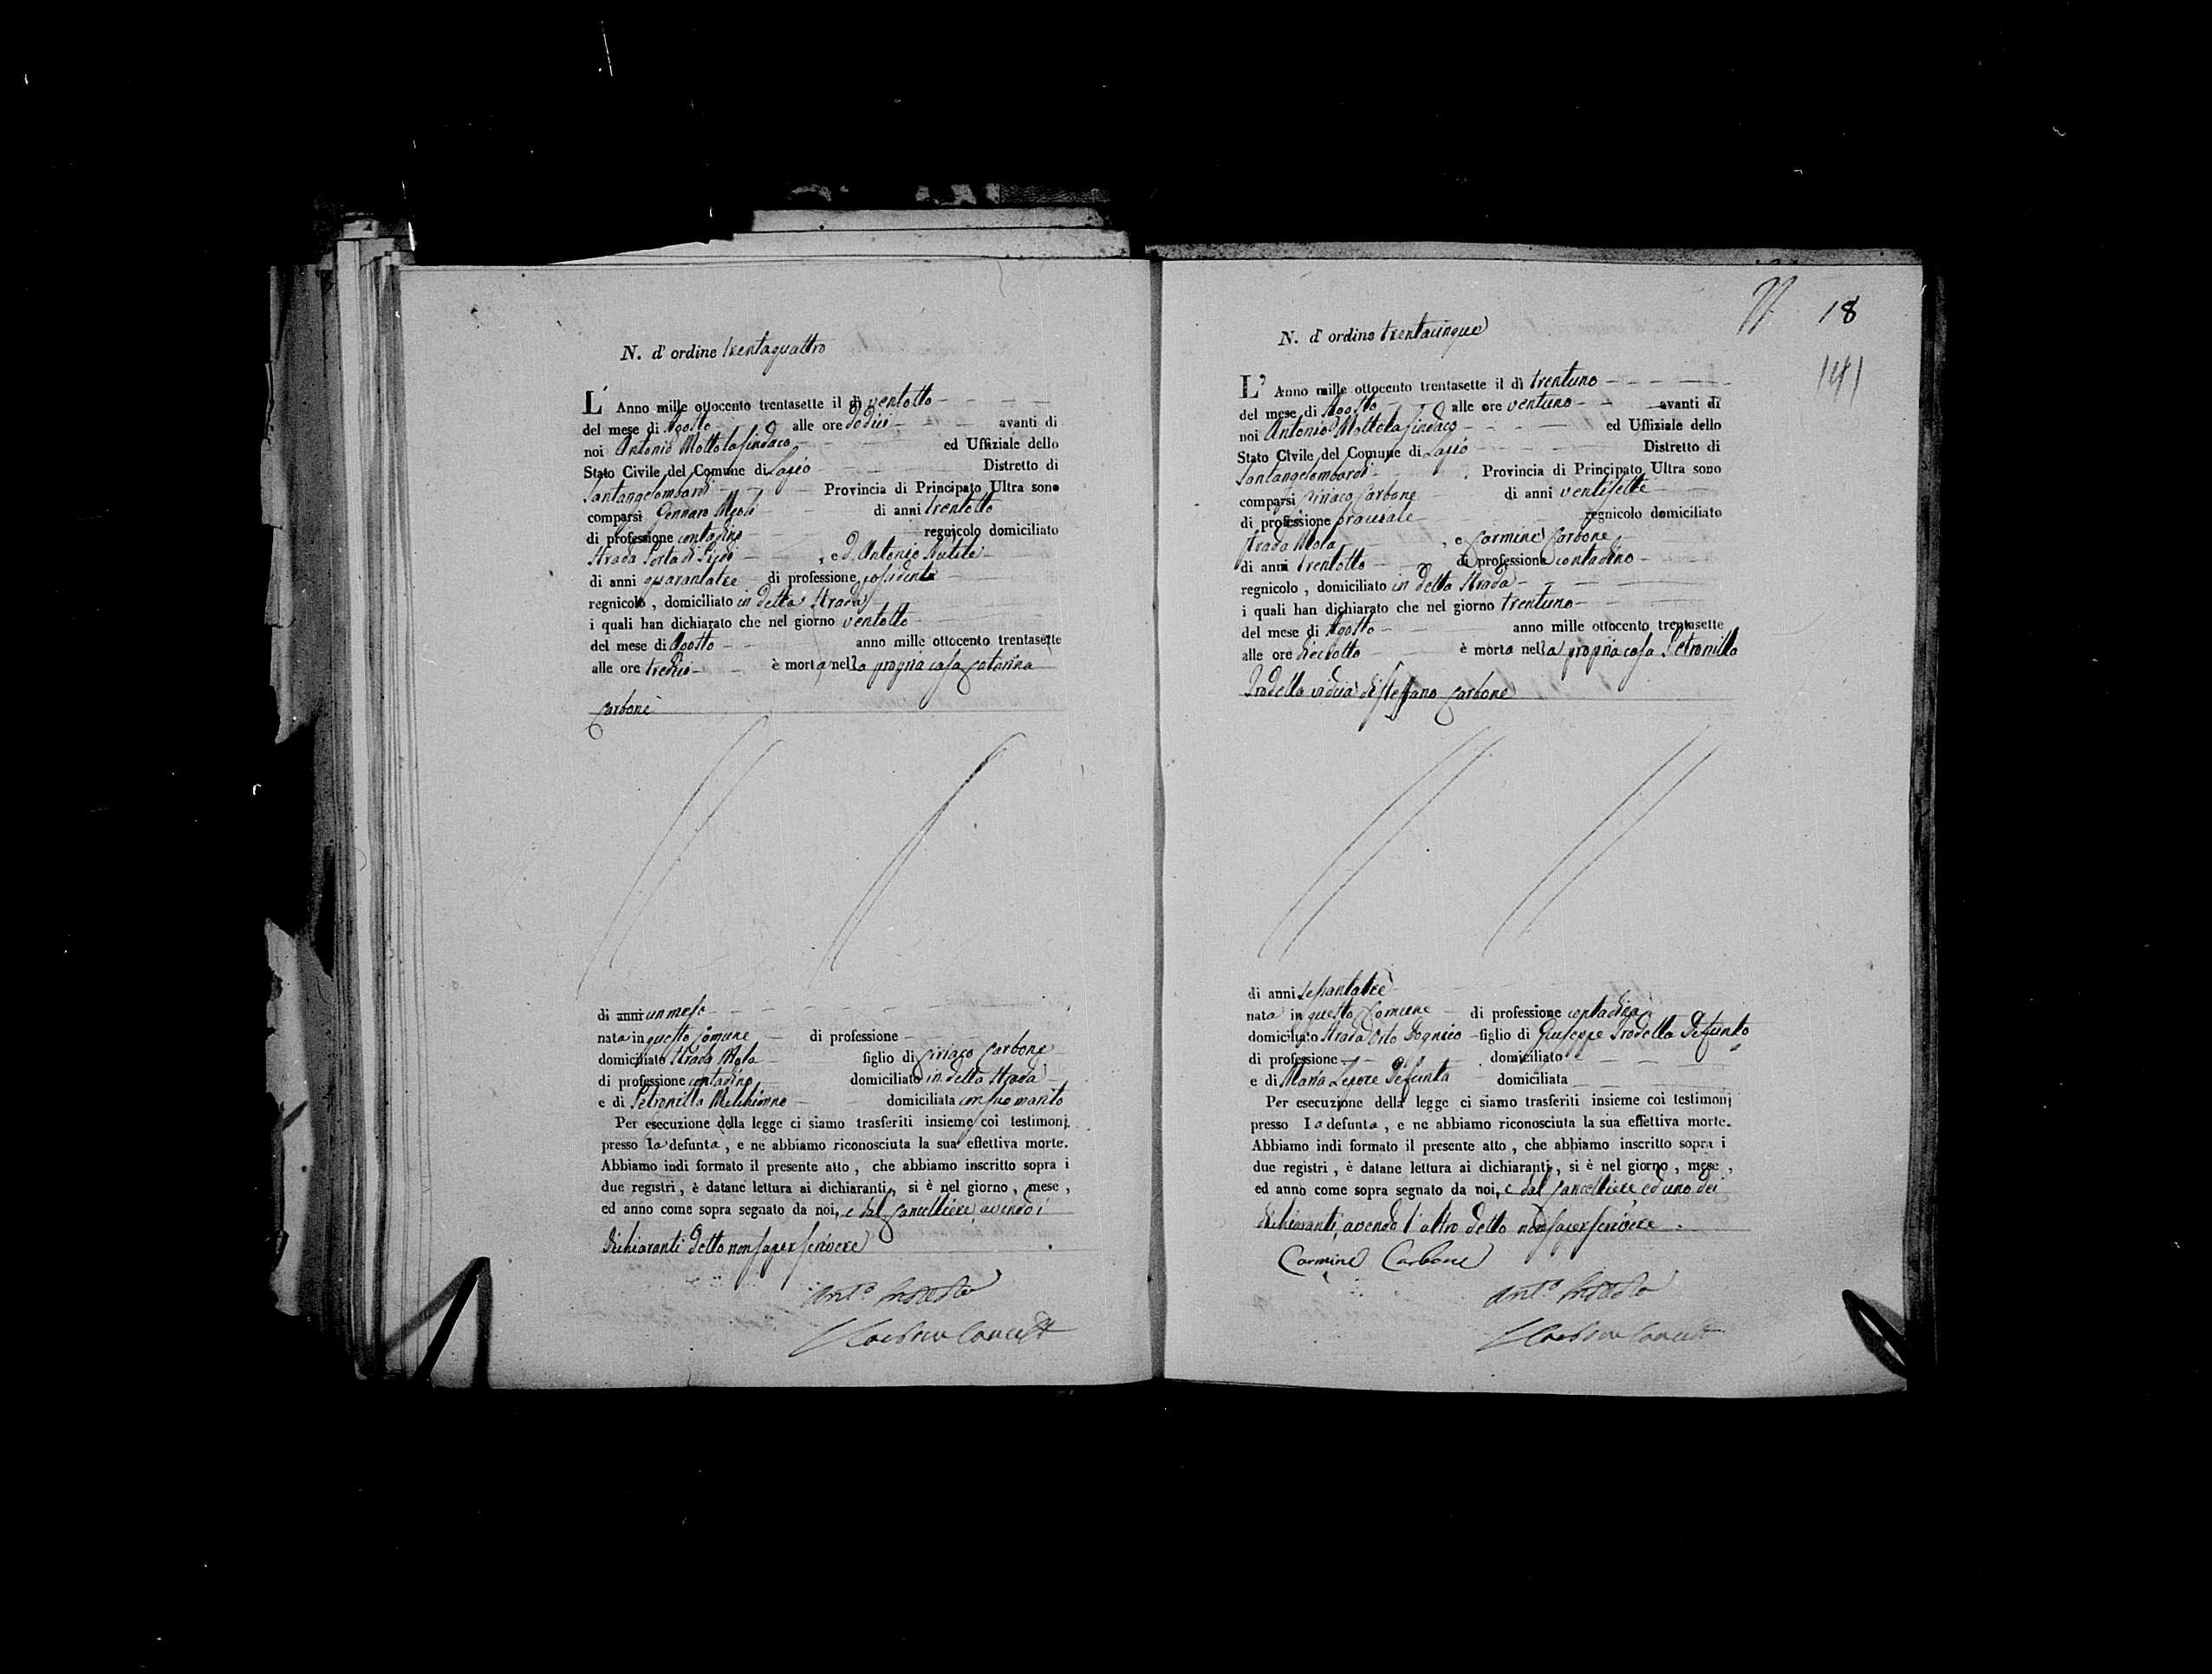 N. d' ordine trentaquattro
L' Anno mille ottocento trentasette il dì ventotto
del mese di Agosto alle ore dodici avanti di
noi Antonio Mottola Sindaco ed Uffiziale dello
Stato Civile del Comune di Lagio Distretto di
Santangelombardi Provincia di Principato Ultra sono
comparsi Gennaro Meoli di anni trentotto
di professione contadino regnicolo domiciliato
Strada Porta di , e D. Antonio Rutile
di anni quarantatre di professione possidente
regnicolo , domiciliato in detta Strada
i quali han dichiarato che nel giorno ventotto
del mese di Agosto anno mille ottocento trentasette
alle ore tredici è morta nella propria casa Catarina
Carbone
di anni un mese
nata in questo Comune di professione
domiciliato Strada Mola figlio di Ciriaco Carbone
di professione contadino domiciliato in detta Strada
e di Petronilla Melchionno domiciliata con suo marito
Per esecuzione della legge ci siamo trasferiti insieme coi testimonj
presso la defunta , e ne abbiamo riconosciuta la sua effettiva morte.
Abbiamo indi formato il presente atto , che abbiamo inscritto sopra i
due registri , è datane lettura ai dichiaranti , si è nel giorno , mese ,
ed anno come sopra segnato da noi, e dal Cancelliere avendo i
dichiaranti detto non saper scrivere
Ant.o
18
141
N. d' ordine trentacinque
L' Anno mille ottocento trentasette il dì trentuno
del mese di Agosto alle ore ventuno avanti di
noi Antonio Mottola Sindaco ed Uffiziale dello
Stato Civile del Comune di Lagio Distretto di
Santangelombardi Provincia di Principato Ultra sono
comparsi Ciriaco Carbone di anni ventisette
di professione bracciale regnicolo domiciliato
Strada Mola , e Carmine Carbone
di anni trentotto di professione contadino
regnicolo , domiciliato in detta Strada
i quali han dichiarato che nel giorno trentuno
del mese di Agosto anno mille ottocento trentasette
alle ore dieciotto è morta nella propria casa Petronilla
Prodella vidua di Steffano Carbone
di anni sessantatre
nata in questo Comune di professione contadina
domiciliato Strada Orto figlio di Giuseppe Prodella Defunto
di professione domiciliato
e di Maria Lepore Defunta domiciliata
Per esecuzione della legge ci siamo trasferiti insieme coi testimonj
presso la defunta , e ne abbiamo riconosciuta la sua effettiva morte.
Abbiamo indi formato il presente atto , che abbiamo inscritto sopra i
due registri , è datane lettura ai dichiaranti , si è nel giorno , mese ,
ed anno come sopra segnato da noi, e dal Cancelliere ed uno dei
dichiaranti, avendo l'altro detto non saper scrivere.
Carmine Carbone
Ant.o